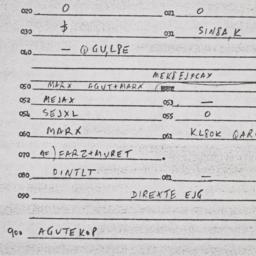 020 0 021 0
030 $ 031 SINSA,K
040 — QGU,LPE
MEKSEJFCAX
050 MARX AGUT+MARX
052 MEJAX 053 —
054 SEJXL 055 0
060 MARX 061 KLSOK QAR
070 90) FARZ+MURET .
080 DINTLT 082 —
090 DIREXTE EJG
900 AGUTEKOP